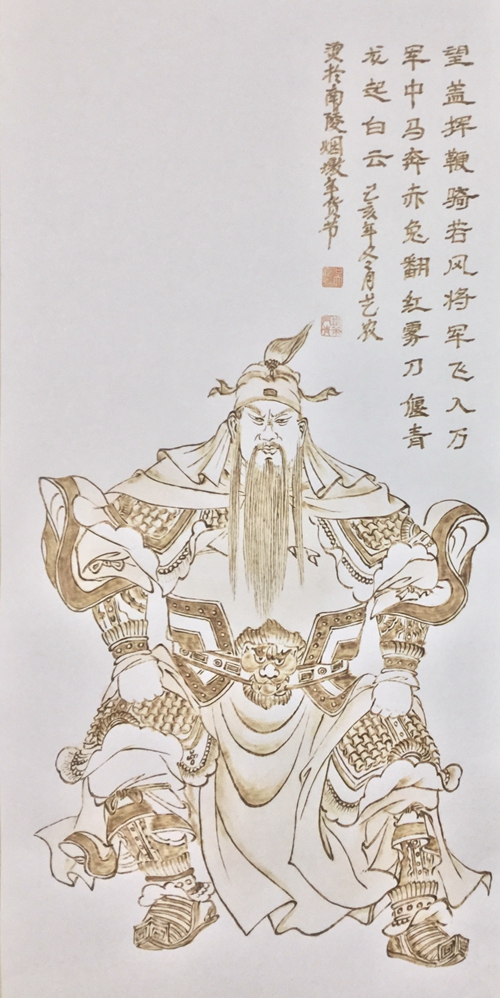 望盖挥鞭骑若风将军飞入万
军中马奔赤兔翻红雾刀偃青
龙起白云 己亥年冬月艺农
烫于南陵烟墩年货节